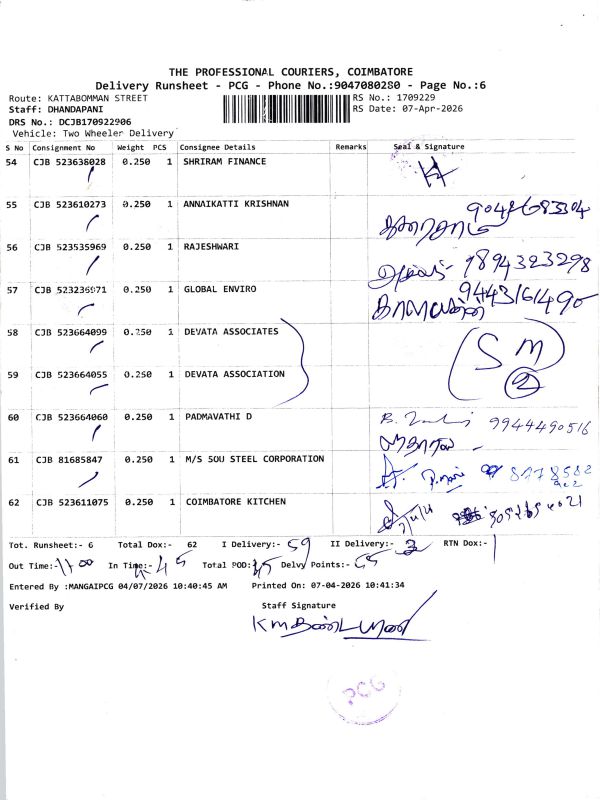 THE PROFESSIONAL COURIERS, COIMBATORE
Delivery Runsheet - PCG - Phone No.:9047080280 - Page No.:6
Route: KATTABOMMAN STREET
RS No.: 1709229
Staff: DHANDAPANI
RS Date: 07-Apr-2026
DRS No.: DCJB170922906
Vehicle: Two Wheeler Delivery
S No Consignment No Weight PCS Consignee Details Remarks Seal & Signature
54 CJB 523638028 0.250 1 SHRIRAM FINANCE
55 CJB 523610273 0.250 1 ANNAIKATTI KRISHNAN
56 CJB 523535969 0.250 1 RAJESHWARI 9894323298
57 CJB 523236971 0.250 1 GLOBAL ENVIRO 9443161490
58 CJB 523664099 0.250 1 DEVATA ASSOCIATES SM
59 CJB 523664055 0.250 1 DEVATA ASSOCIATION 2
60 CJB 523664060 0.250 1 PADMAVATHI D 9944490516
61 CJB 81685847 0.250 1 M/S SOU STEEL CORPORATION
62 CJB 523611075 0.250 1 COIMBATORE KITCHEN
Tot. Runsheet:- 6 Total Dox:- 62 I Delivery:- 59 II Delivery:- RTN Dox:-
Out Time:- 11.00 In Time:- Total POD: Delvy Points:- 55
Entered By :MANGAIPCG 04/07/2026 10:40:45 AM Printed On: 07-04-2026 10:41:34
Verified By Staff Signature
PCG